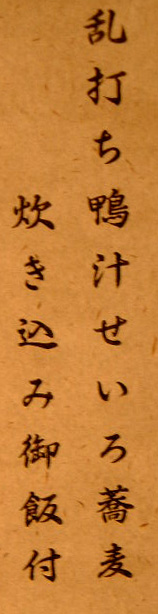 乱打ち鴨汁せいろ蕎麦
炊き込み御飯付